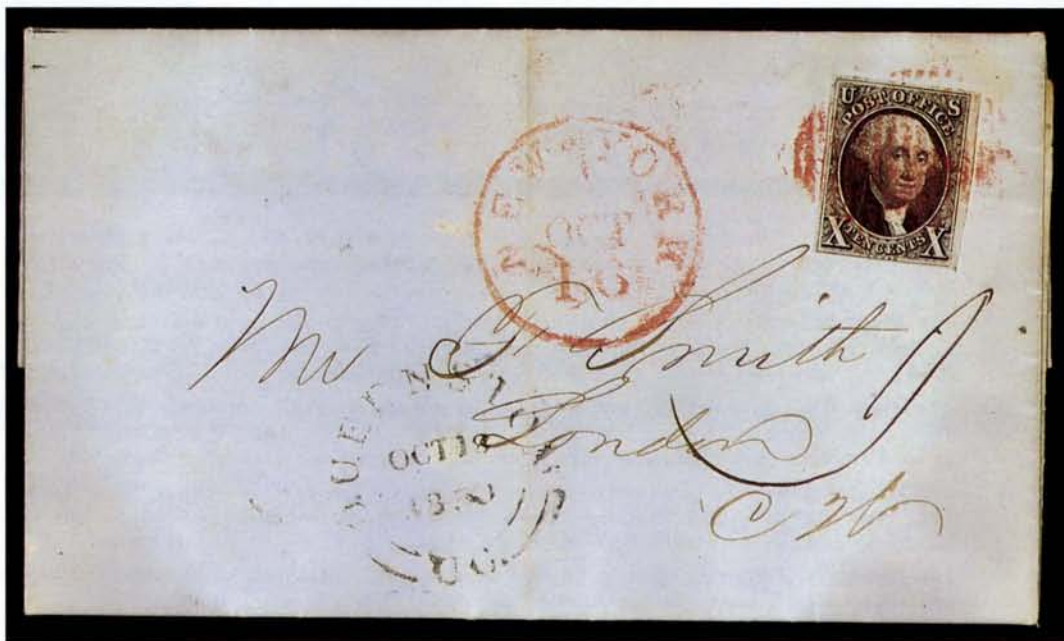 U S
POST OFFICE
X TEN CENTS X
NEW YORK
OCT
16
Mr Smith
London
C W
QUEENSTON
OCT 18
1850
U.C.